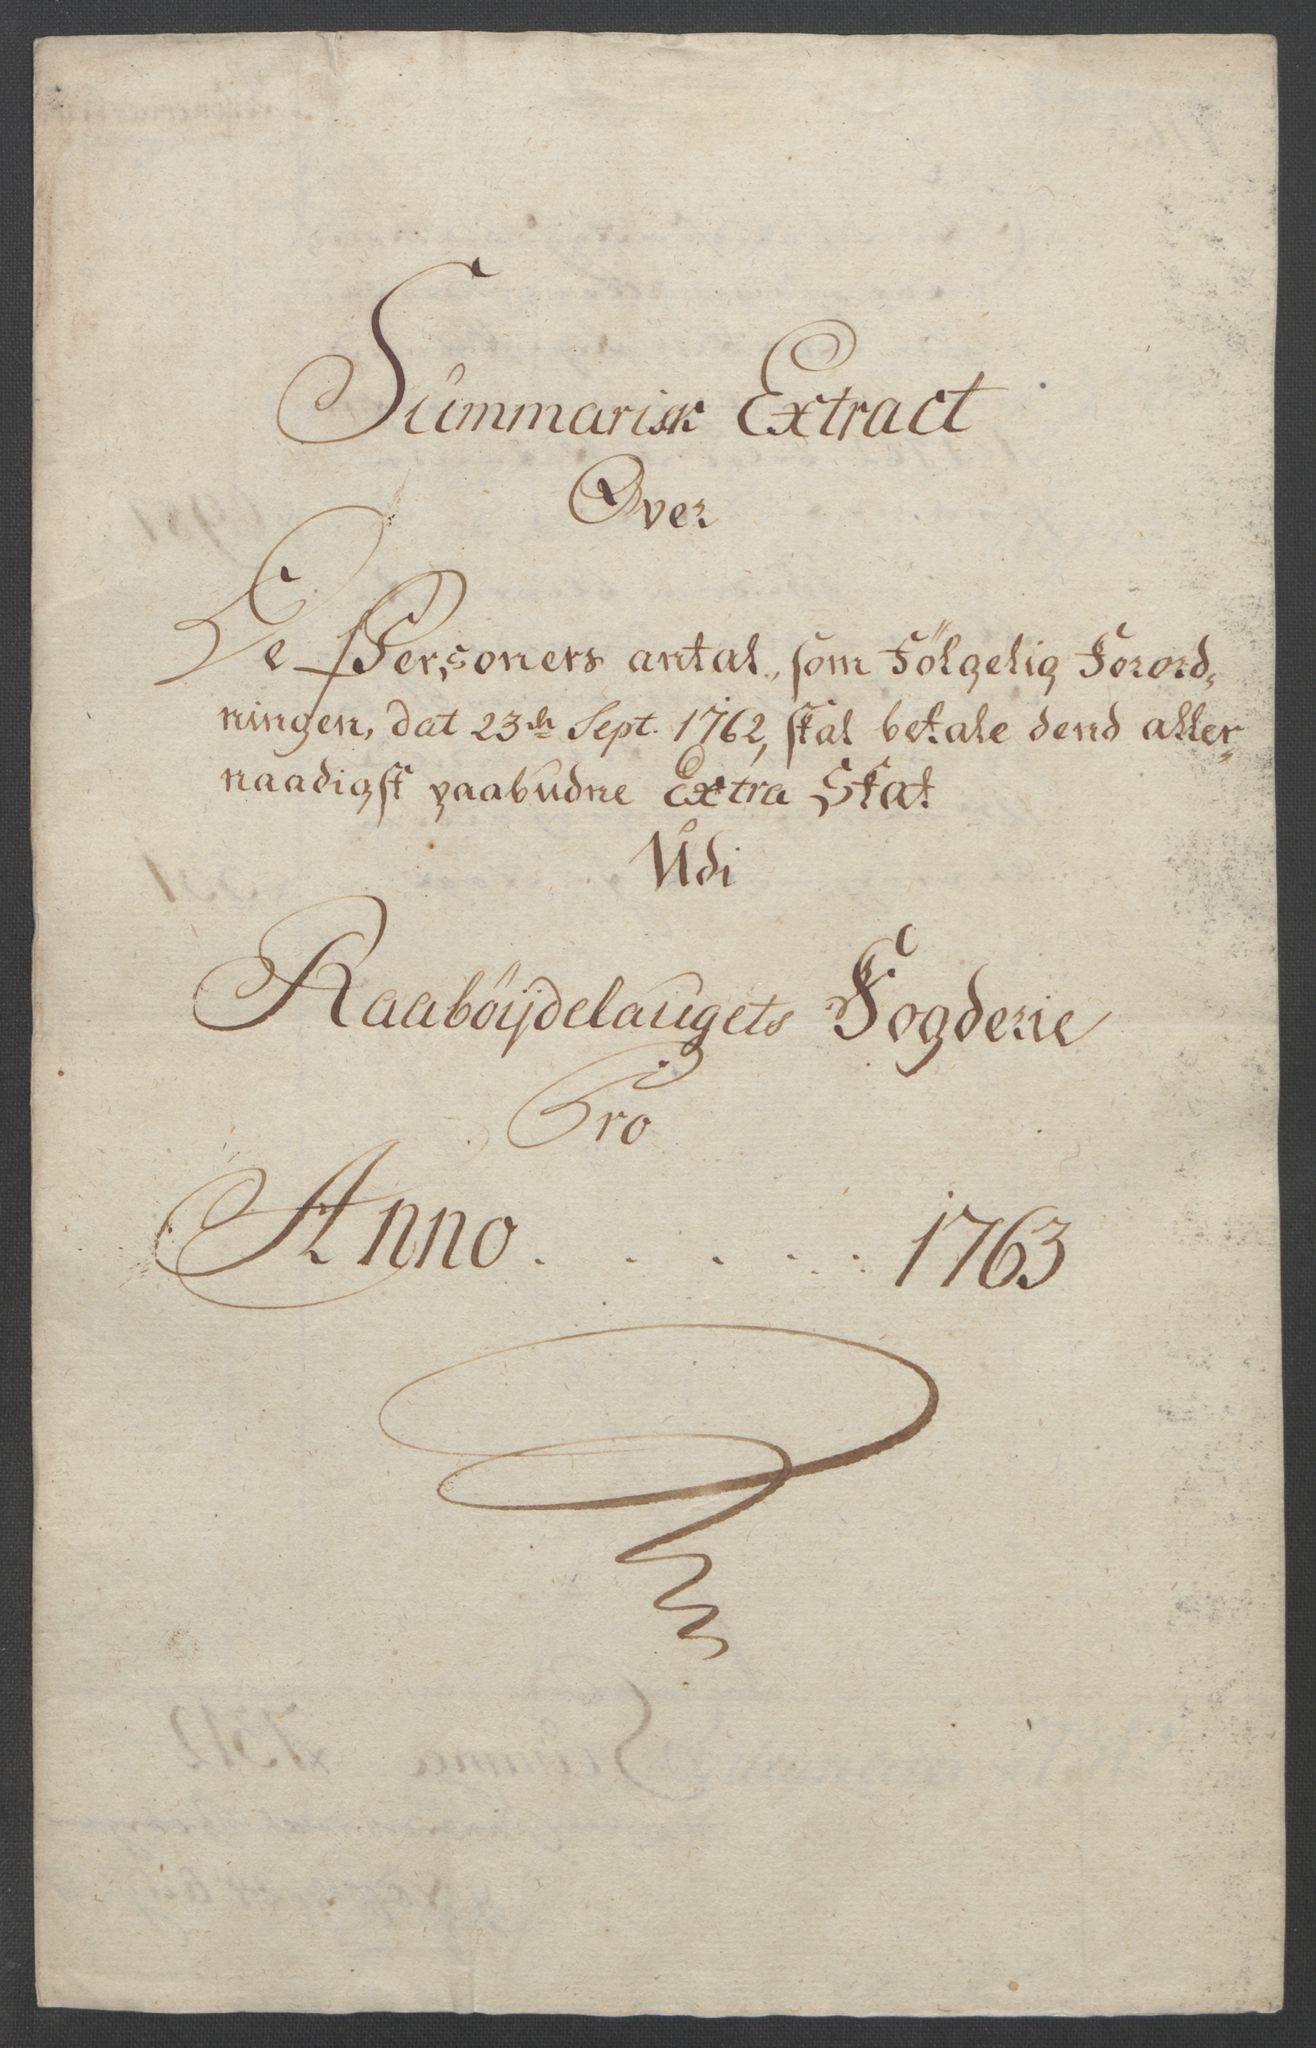 Summarisk Extract
Over
De Personers antal, som Fölgelig Forord,
ningen, dat 23de Sept. 1762, skal betale dend aller,,
naadigst paabudne Extra Skat
Udi
Raaböijdelaugets Fogderie
Pro
Anno . . . . . . 1763